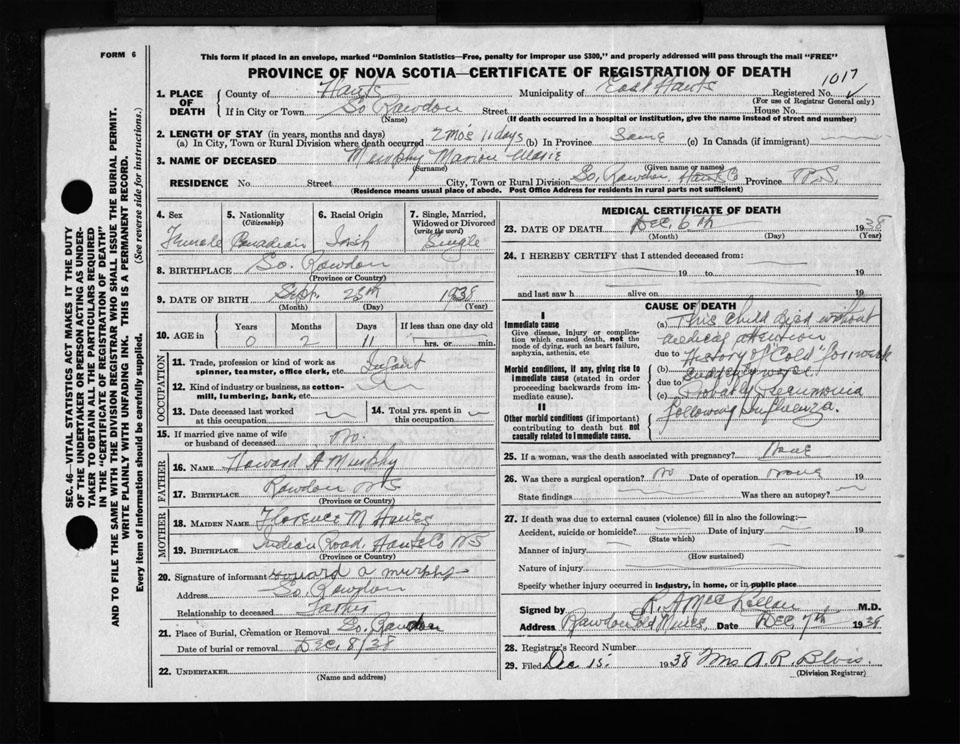 FORM 6
This form if placed in an envelope, marked "Dominion Statistics—Free, penalty for improper use $300," and properly addressed will pass through the mail "FREE"
PROVINCE OF NOVA SCOTIA—CERTIFICATE OF REGISTRATION OF DEATH
1017
1. PLACE OF DEATH
County of Hants Municipality of East Hants Registered No.
(For use of Registrar General only)
If in City or Town So Rawdon Street House No.
(Name) (If death occurred in a hospital or institution, give the name instead of street and number)
2. LENGTH OF STAY (in years, months and days)
(a) In City, Town or Rural Division where death occurred 2 mo's 11 days (b) In Province Same (c) In Canada (if immigrant)
3. NAME OF DECEASED Murphy Marion Marie
(Surname) (Given name or names)
RESIDENCE No. Street City, Town or Rural Division So, Rawdon, Hants Co Province N.S.
(Residence means usual place of abode. Post Office Address for residents in rural parts not sufficient)
4. Sex Female
5. Nationality (Citizenship) Canadian
6. Racial Origin Irish
7. Single, Married, Widowed or Divorced (write the word) Single
8. BIRTHPLACE So. Rawdon
(Province or Country)
9. DATE OF BIRTH Sept. 25th 1938
(Month) (Day) (Year)
10. AGE in Years Months Days If less than one day old
0 2 11 hrs. or min.
OCCUPATION
11. Trade, profession or kind of work as spinner, teamster, office clerk, etc. Infant
12. Kind of industry or business, as cotton-mill, lumbering, bank, etc.
13. Date deceased last worked at this occupation
14. Total yrs. spent in this occupation
15. If married give name of wife or husband of deceased No.
FATHER
16. NAME Howard A Murphy
17. BIRTHPLACE Rawdon NS
(Province or Country)
MOTHER
18. MAIDEN NAME Florence M
19. BIRTHPLACE Indian Road, Hants Co NS
(Province or Country)
20. Signature of informant Howard a murphy
Address So. Rawdon
Relationship to deceased Father
21. Place of Burial, Cremation or Removal So, Rawdon
Date of burial or removal Dec. 8/38
22. UNDERTAKER
(Name and address)
MEDICAL CERTIFICATE OF DEATH
23. DATE OF DEATH Dec. 6th 1938
(Month) (Day) (Year)
24. I HEREBY CERTIFY that I attended deceased from:
19 to 19
and last saw h alive on 19
CAUSE OF DEATH
I
Immediate cause
Give disease, injury or complication which caused death, not the mode of dying, such as heart failure, asphyxia, asthenia, etc
Morbid conditions, if any, giving rise to immediate cause (stated in order proceeding backwards from immediate cause).
II
Other morbid conditions (if important) contributing to death but not causally related to immediate cause.
(a) This child died without
medical attention
due to History of "Cold" for week
(b) Suddenly worse
due to
(c) Probably Pneumonia
following Influenza.
25. If a woman, was the death associated with pregnancy? None
26. Was there a surgical operation? No Date of operation None 19
State findings Was there an autopsy?
27. If death was due to external causes (violence) fill in also the following:—
Accident, suicide or homicide? Date of injury 19
(State which)
Manner of injury
(How sustained)
Nature of injury
Specify whether injury occurred in industry, in home, or in public place
Signed by R. A MacLellan M.D.
Address Rawdon Gold Mines, Date Dec. 7th 1938
28. Registrar's Record Number
29. Filed Dec. 15. 1938 Mrs A. R. Blois.
(Division Registrar)
SEC. 46—VITAL STATISTICS ACT MAKES IT THE DUTY
OF THE UNDERTAKER OR PERSON ACTING AS UNDER-
TAKER TO OBTAIN ALL THE PARTICULARS REQUIRED
IN THE "CERTIFICATE OF REGISTRATION OF DEATH"
AND TO FILE THE SAME WITH THE DIVISION REGISTRAR WHO SHALL ISSUE THE BURIAL PERMIT.
WRITE PLAINLY WITH UNFADING INK. THIS IS A PERMANENT RECORD.
Every item of information should be carefully supplied. (See reverse side for instructions.)